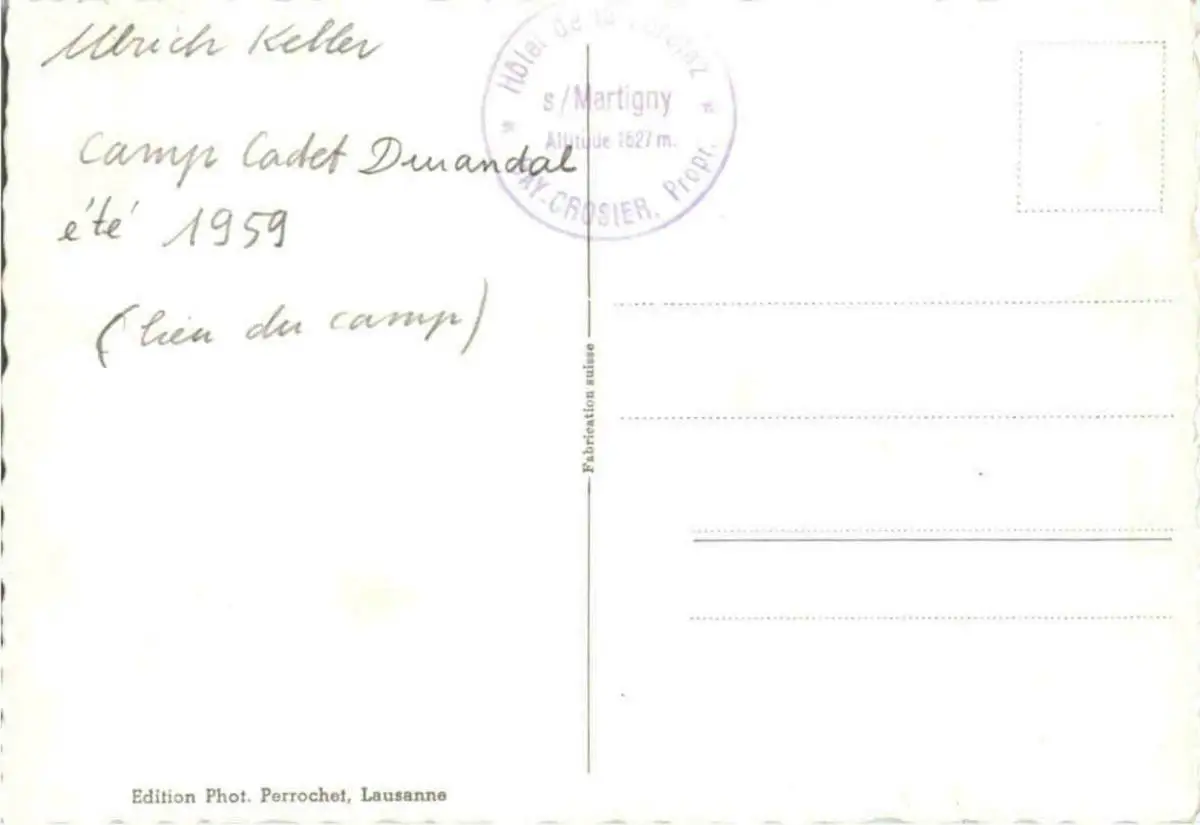 Ulrich Keller
Camp Cadet Durandal
été 1959
(lieu du camp)
Hôtel de la
s/Martigny
Altitude 1527 m.
AY-CROSIER, Propr.
Fabrication suisse
Edition Phot. Perrochet, Lausanne